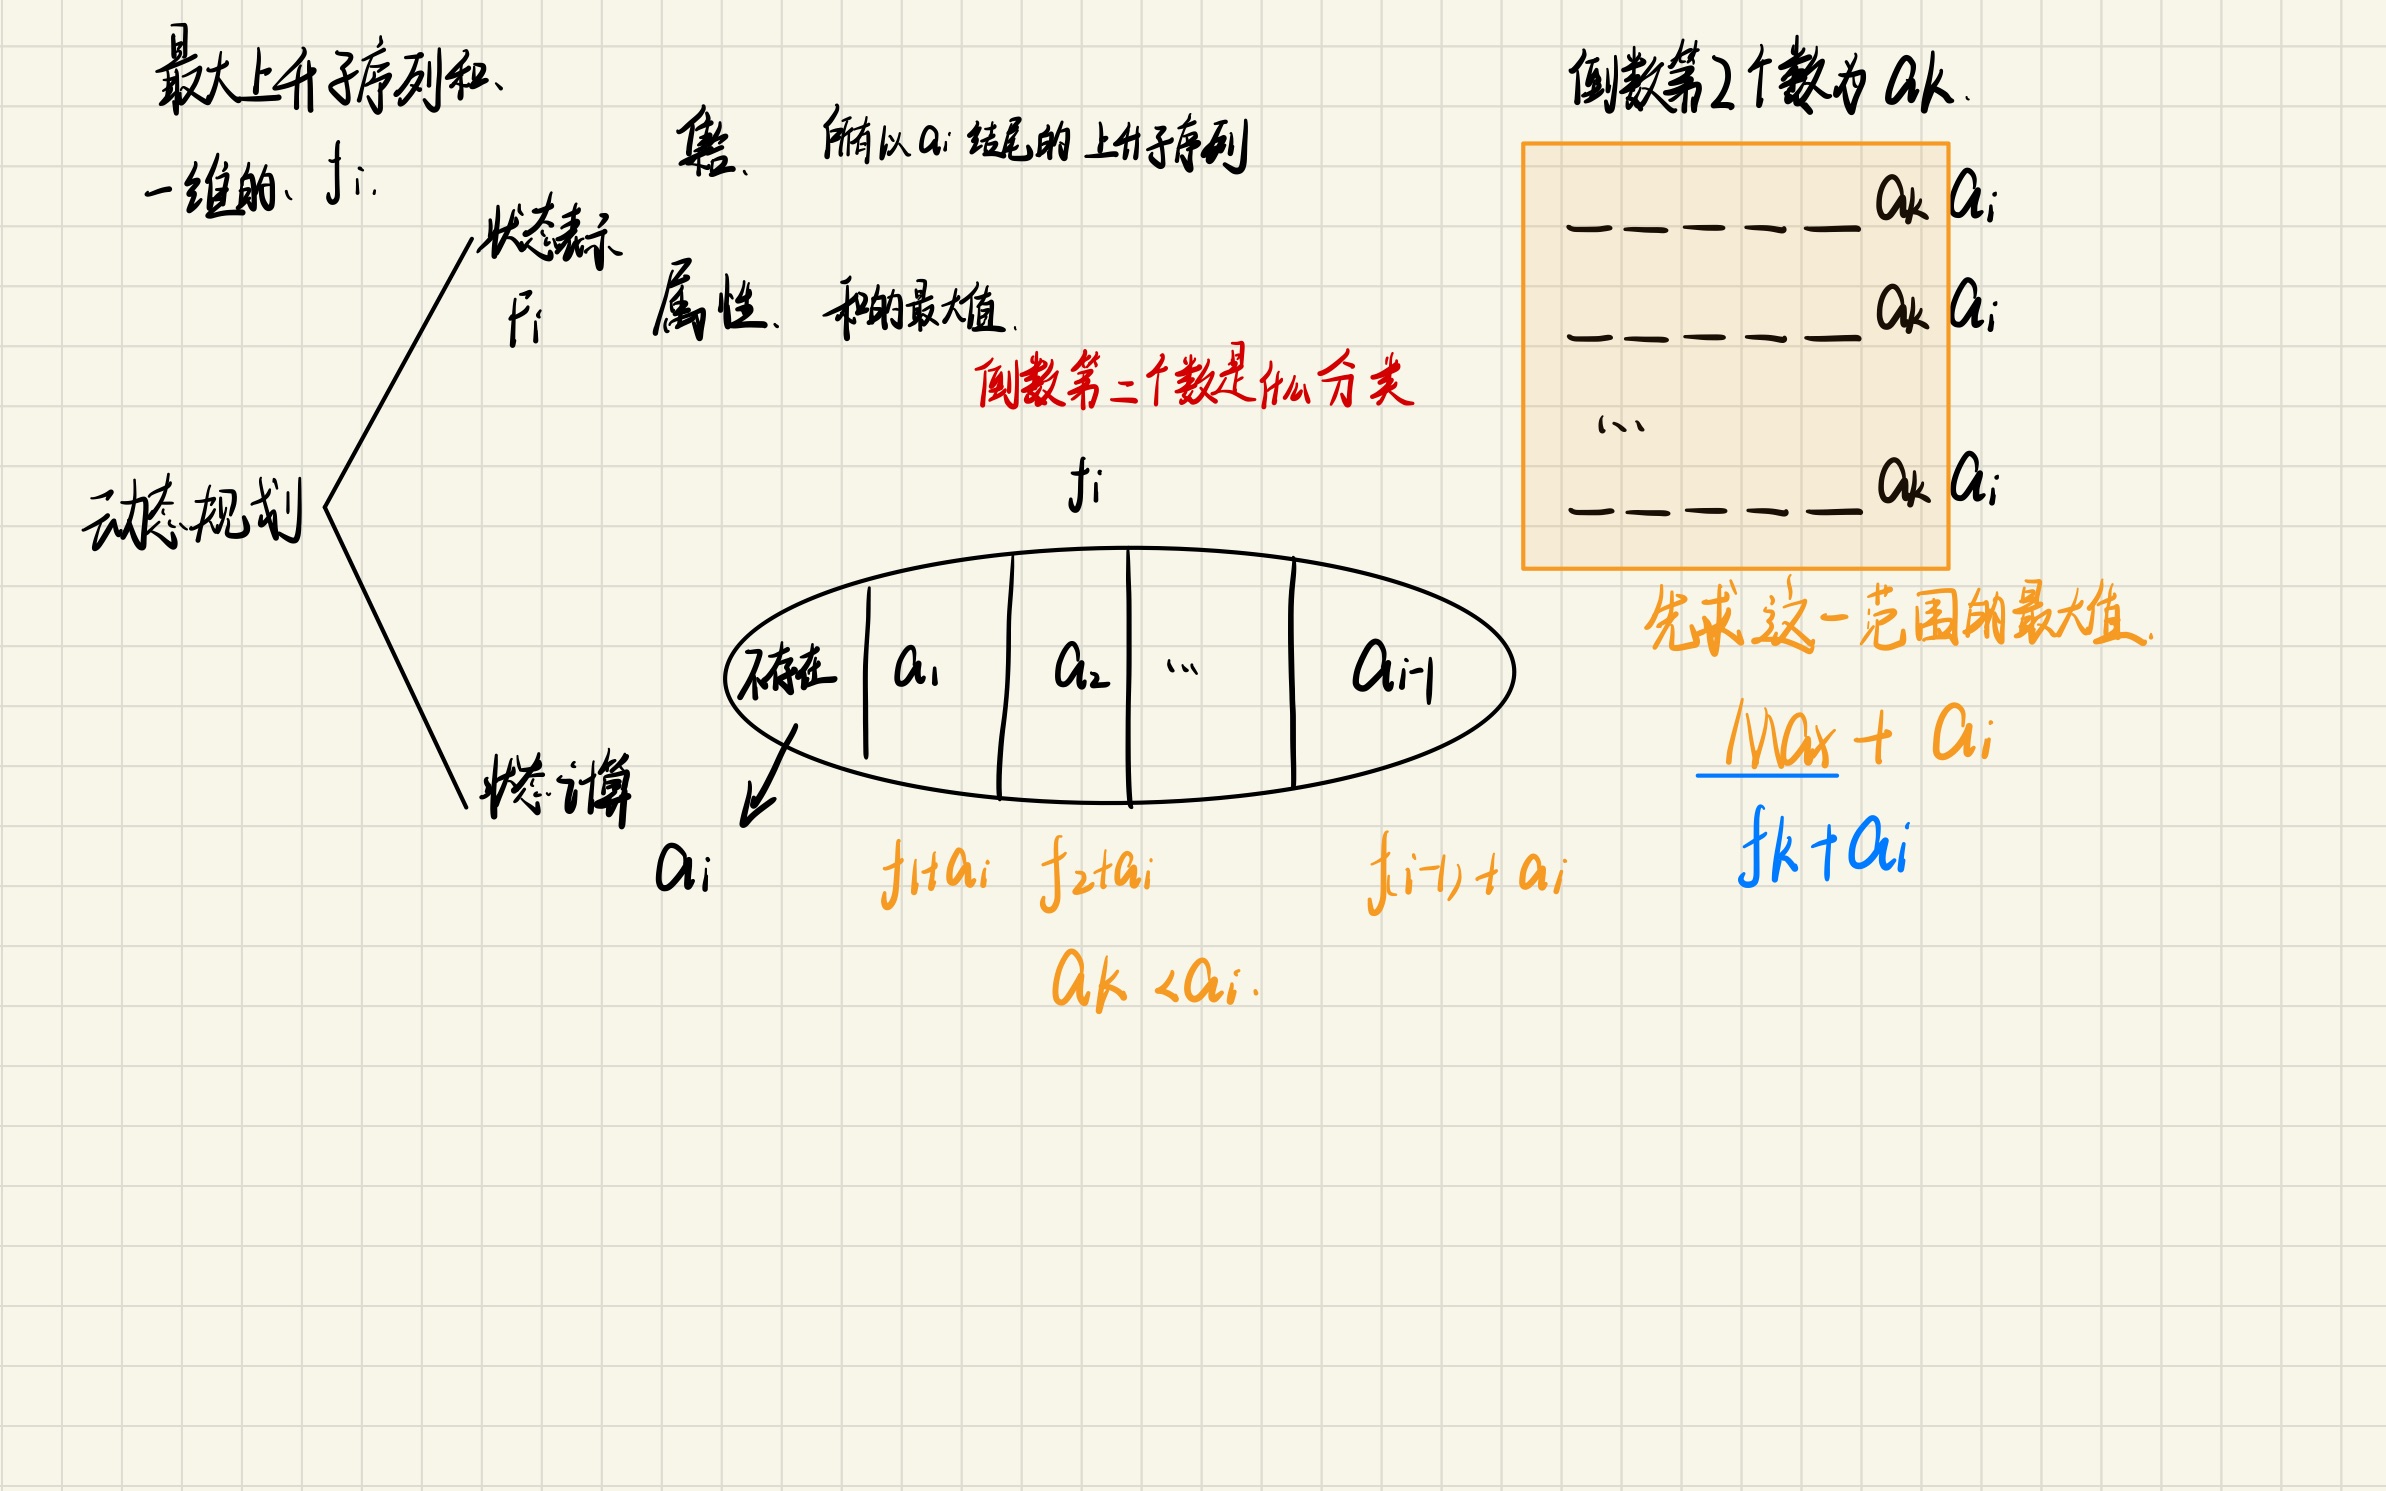 最大上升子序列和、
一维的、fi.
集合、 所有以ai结尾的上升子序列
状态表示
fi
属性、 和的最大值.
倒数第二个数是什么分类
动态规划
fi
不存在 a1 a2 ... ai-1
状态计算
ai
f1+ai f2+ai f(i-1)+ai
ak <ai.
倒数第2个数为ak.
ak ai
ak ai
...
ak ai
先求这一范围的最大值.
Max + ai
fk+ai